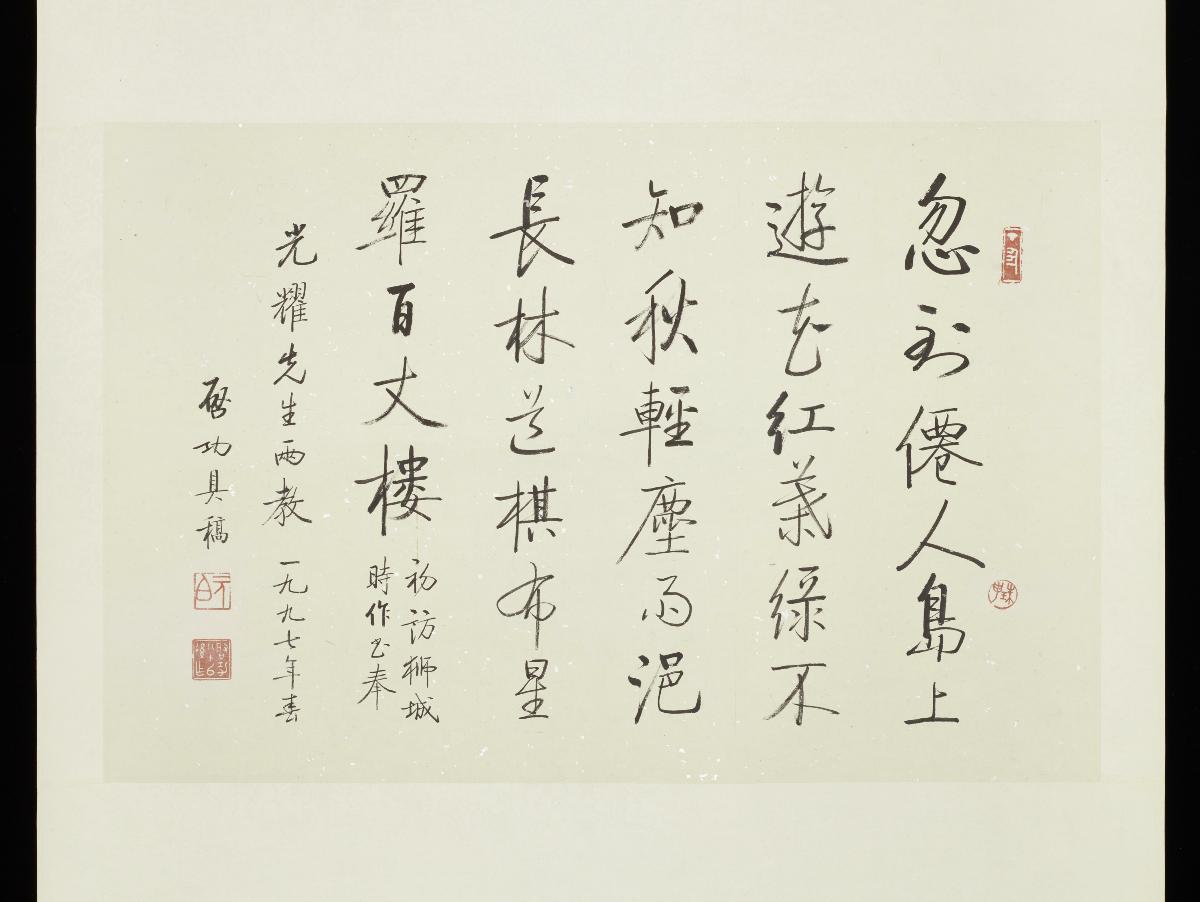 忽到僊人島上
遊花紅葉綠不
知秋輕塵雨浥
長林道棋布星
羅百丈樓
初訪獅城
時作書奉
光耀先生兩教 一九九七年春
啓功具稿